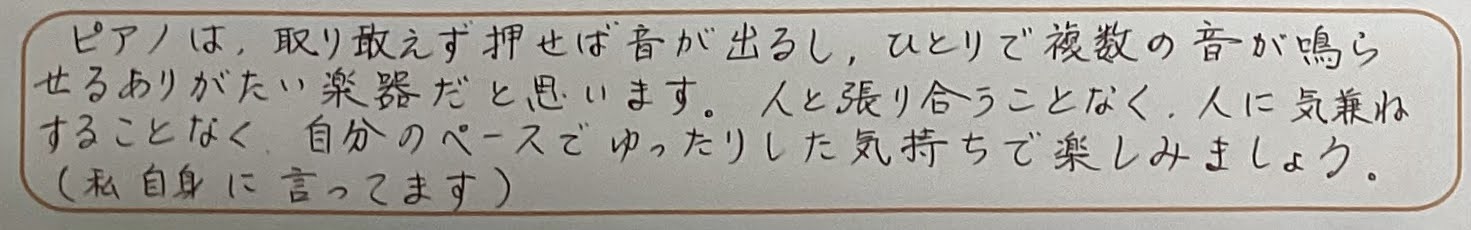 ピアノは、取り敢えず押せば音が出るし、ひとりで複数の音が鳴ら
せるありがたい楽器だと思います。人と張り合うことなく、人に気兼ね
することなく、自分のペースでゆったりした気持ちで楽しみましょう。
(私自身に言ってます)